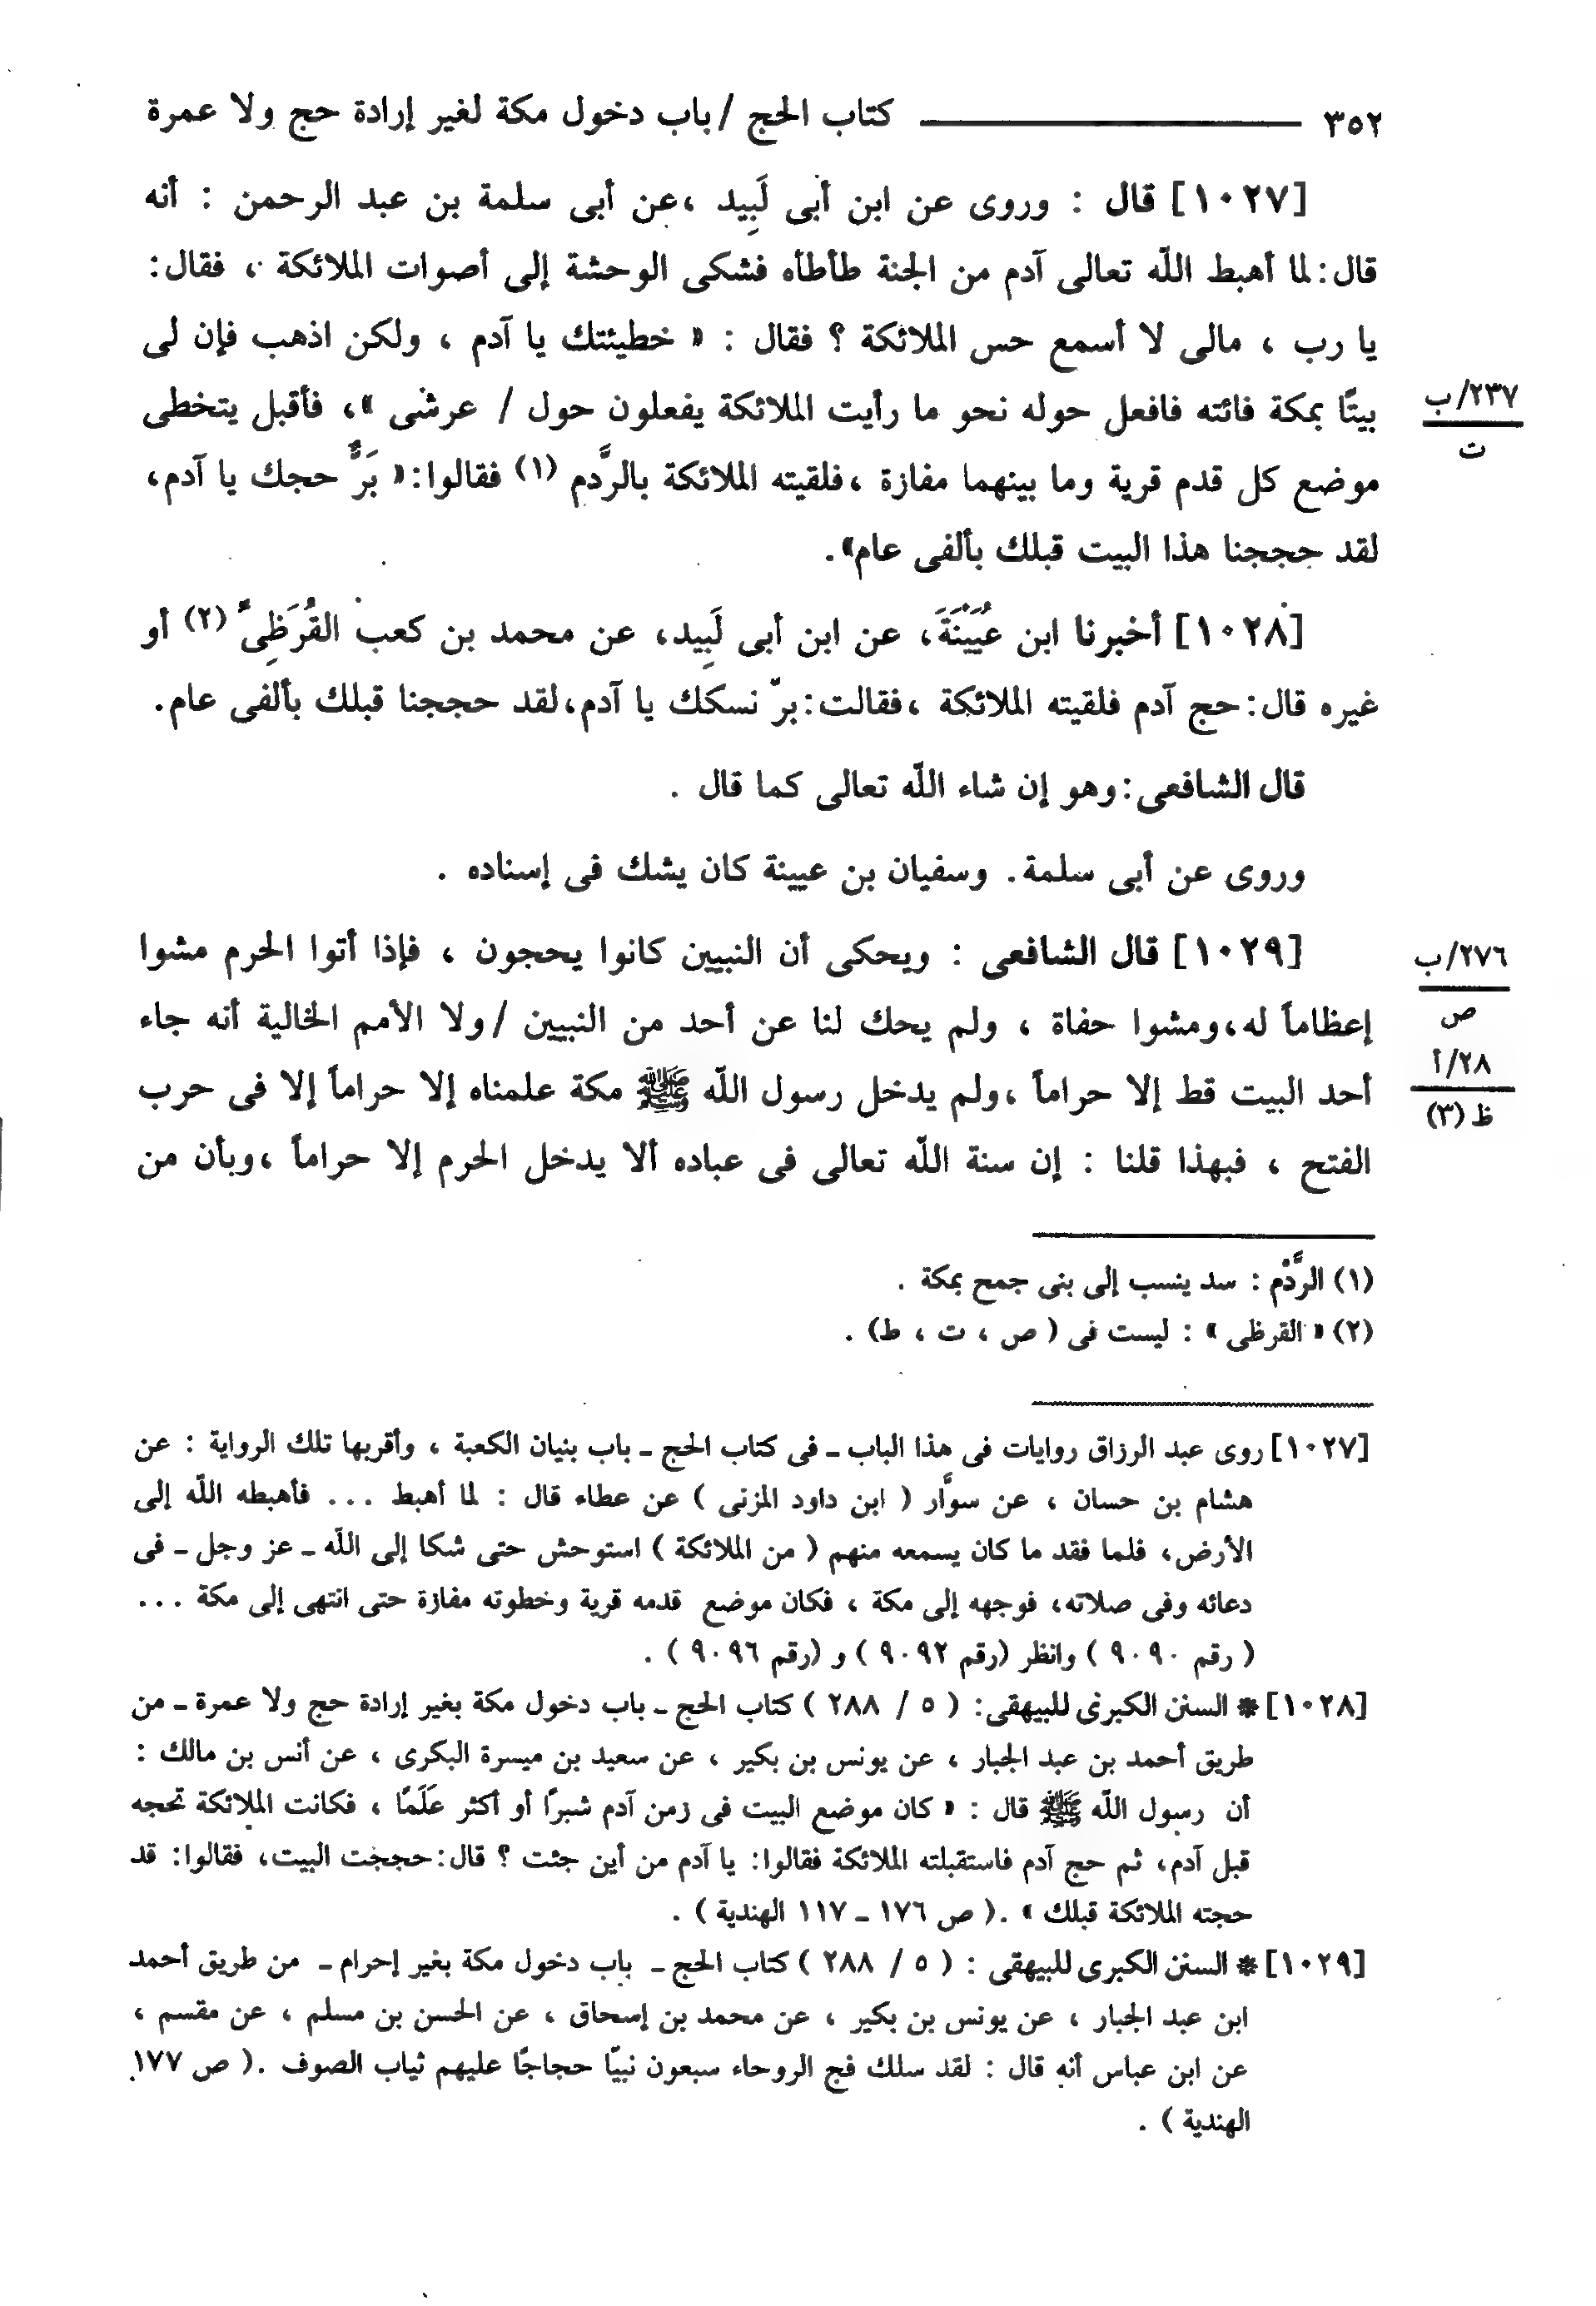 ٣٥٢ كتاب الحج / باب دخول مكة لغير إرادة حج ولا عمرة
[١٠٢٧] قال : وروى عن ابن أبى لَبِيد ،عن أبى سلمة بن عبد الرحمن : أنه
قال:لما أهبط اللّه تعالى آدم من الجنة طأطأه فشكى الوحشة إلى أصوات الملائكة ، فقال:
يا رب ، مالى لا أسمع حس الملائكة ؟ فقال : « خطيئتك يا آدم ، ولكن اذهب فإن لى
بيتًا بمكة فائته فافعل حوله نحو ما رأيت الملائكة يفعلون حول / عرشى »، فأقبل يتخطى
٢٣٧/ب
ت
موضع كل قدم قرية وما بينهما مفازة ،فلقيته الملائكة بالرَّدم (١) فقالوا:« بَرَّ حجك يا آدم،
لقد حججنا هذا البيت قبلك بألفى عام».
[١٠٢٨] أخبرنا ابن عُيَيْنَةَ، عن ابن أبى لَبِيد، عن محمد بن كعب القُرَظِىِّ (٢) أو
غيره قال:حج آدم فلقيته الملائكة ،فقالت:برّ نسكك يا آدم،لقد حججنا قبلك بألفى عام.
قال الشافعى:وهو إن شاء اللّه تعالى كما قال .
وروى عن أبى سلمة. وسفيان بن عيينة كان يشك فى إسناده .
[١٠٢٩] قال الشافعى : ويحكى أن النبيين كانوا يحجون ، فإذا أتوا الحرم مشوا
٢٧٦/ب
ص
إعظاماً له،ومشوا حفاة ، ولم يحك لنا عن أحد من النبيين /ولا الأمم الخالية أنه جاء
٢٨/أ
ظ (٣)
أحد البيت قط إلا حراماً ،ولم يدخل رسول اللّه ﷺ مكة علمناه إلا حراماً إلا فى حرب
الفتح ، فبهذا قلنا : إن سنة اللّه تعالى فى عباده ألا يدخل الحرم إلا حراماً ،وبأن من
(١) الرَّدْم : سد ينسب إلى بنى جمح بمكة .
(٢) « القرظى » : ليست فى ( ص ، ت ، ط) .
[١٠٢٧] روى عبد الرزاق روايات فى هذا الباب ـ فى كتاب الحج ـ باب بنيان الكعبة ، وأقربها تلك الرواية : عن
هشام بن حسان ، عن سوَّار ( ابن داود المزنى ) عن عطاء قال : لما أهبط ... فأهبطه اللّه إلى
الأرض، فلما فقد ما كان يسمعه منهم ( من الملائكة ) استوحش حتى شكا إلى اللّه ـ عز وجل ـ فى
دعائه وفى صلاته، فوجهه إلى مكة ، فكان موضع قدمه قرية وخطوته مفازة حتى انتهى إلى مكة ...
( رقم ٩٠٩٠ ) وانظر (رقم ٩٠٩٢ ) و (رقم ٩٠٩٦ ) .
[١٠٢٨] * السنن الكبرى للبيهقى: ( ٥ / ٢٨٨ ) كتاب الحج ـ باب دخول مكة بغير إرادة حج ولا عمرة ـ من
طريق أحمد بن عبد الجبار ، عن يونس بن بكير ، عن سعيد بن ميسرة البكرى ، عن أنس بن مالك :
أن رسول اللّه ﷺ قال : « كان موضع البيت فى زمن آدم شبرًا أو أكثر عَلَمًا ، فكانت الملائكة تحجه
قبل آدم، ثم حج آدم فاستقبلته الملائكة فقالوا: يا آدم من أين جئت ؟ قال:حججت البيت، فقالوا: قد
حجته الملائكة قبلك » .( ص ١٧٦ ـ ١١٧ الهندية ) .
[١٠٢٩] * السنن الكبرى للبيهقى : ( ٥ / ٢٨٨ ) كتاب الحج ـ باب دخول مكة بغير إحرام ـ من طريق أحمد
ابن عبد الجبار ، عن يونس بن بكير ، عن محمد بن إسحاق ، عن الحسن بن مسلم ، عن مقسم ،
عن ابن عباس أنه قال : لقد سلك فج الروحاء سبعون نبيّا حجاجًا عليهم ثياب الصوف .( ص ١٧٧
الهندية ) .